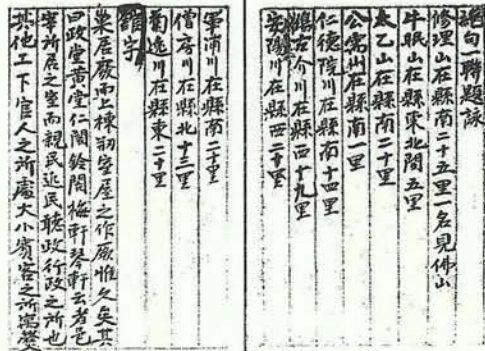 絕句一聯題詠
修理山在縣南二十五里一名見佛山
牛眠山在縣東北間五里
太乙山在縣南二十里
公需川在縣南一里
仁德院川在縣南十四里
鶴古介川在縣西十九里
安陽川在縣西二十里
軍浦川在縣南二十里
僧房川在縣北十三里
菊逸川在縣東二十里
館宇
巢居廢而上棟初室屋之作厥惟久矣其
曰政堂黃堂仁閣鈴閣梅軒琴軒云者邑
宰所居之室而親民近民聽政行政之所也
其他工下官人之所處大小賓客之所寓